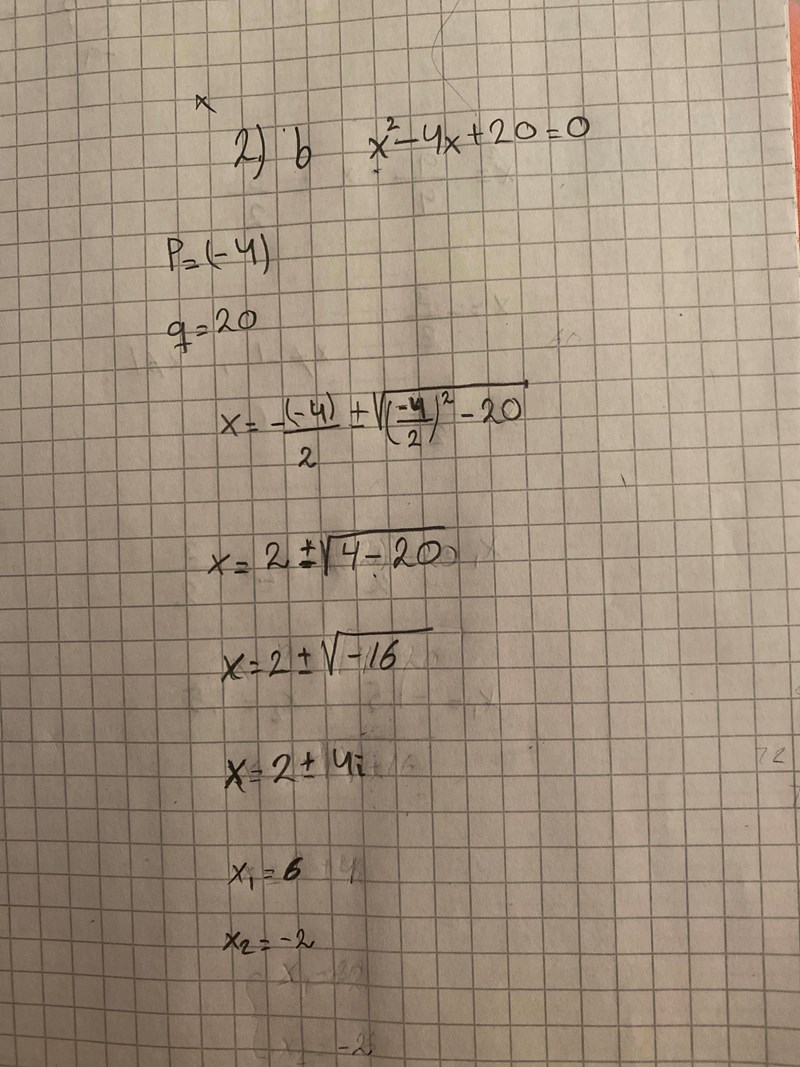 2) b x² - 4x + 20 = 0
P = (-4)
q = 20
x = -(-4)/2 ± √((-4/2)² - 20)
x = 2 ± √(4 - 20)
x = 2 ± √(-16)
x = 2 ± 4i
x₁ = 6
x₂ = -2